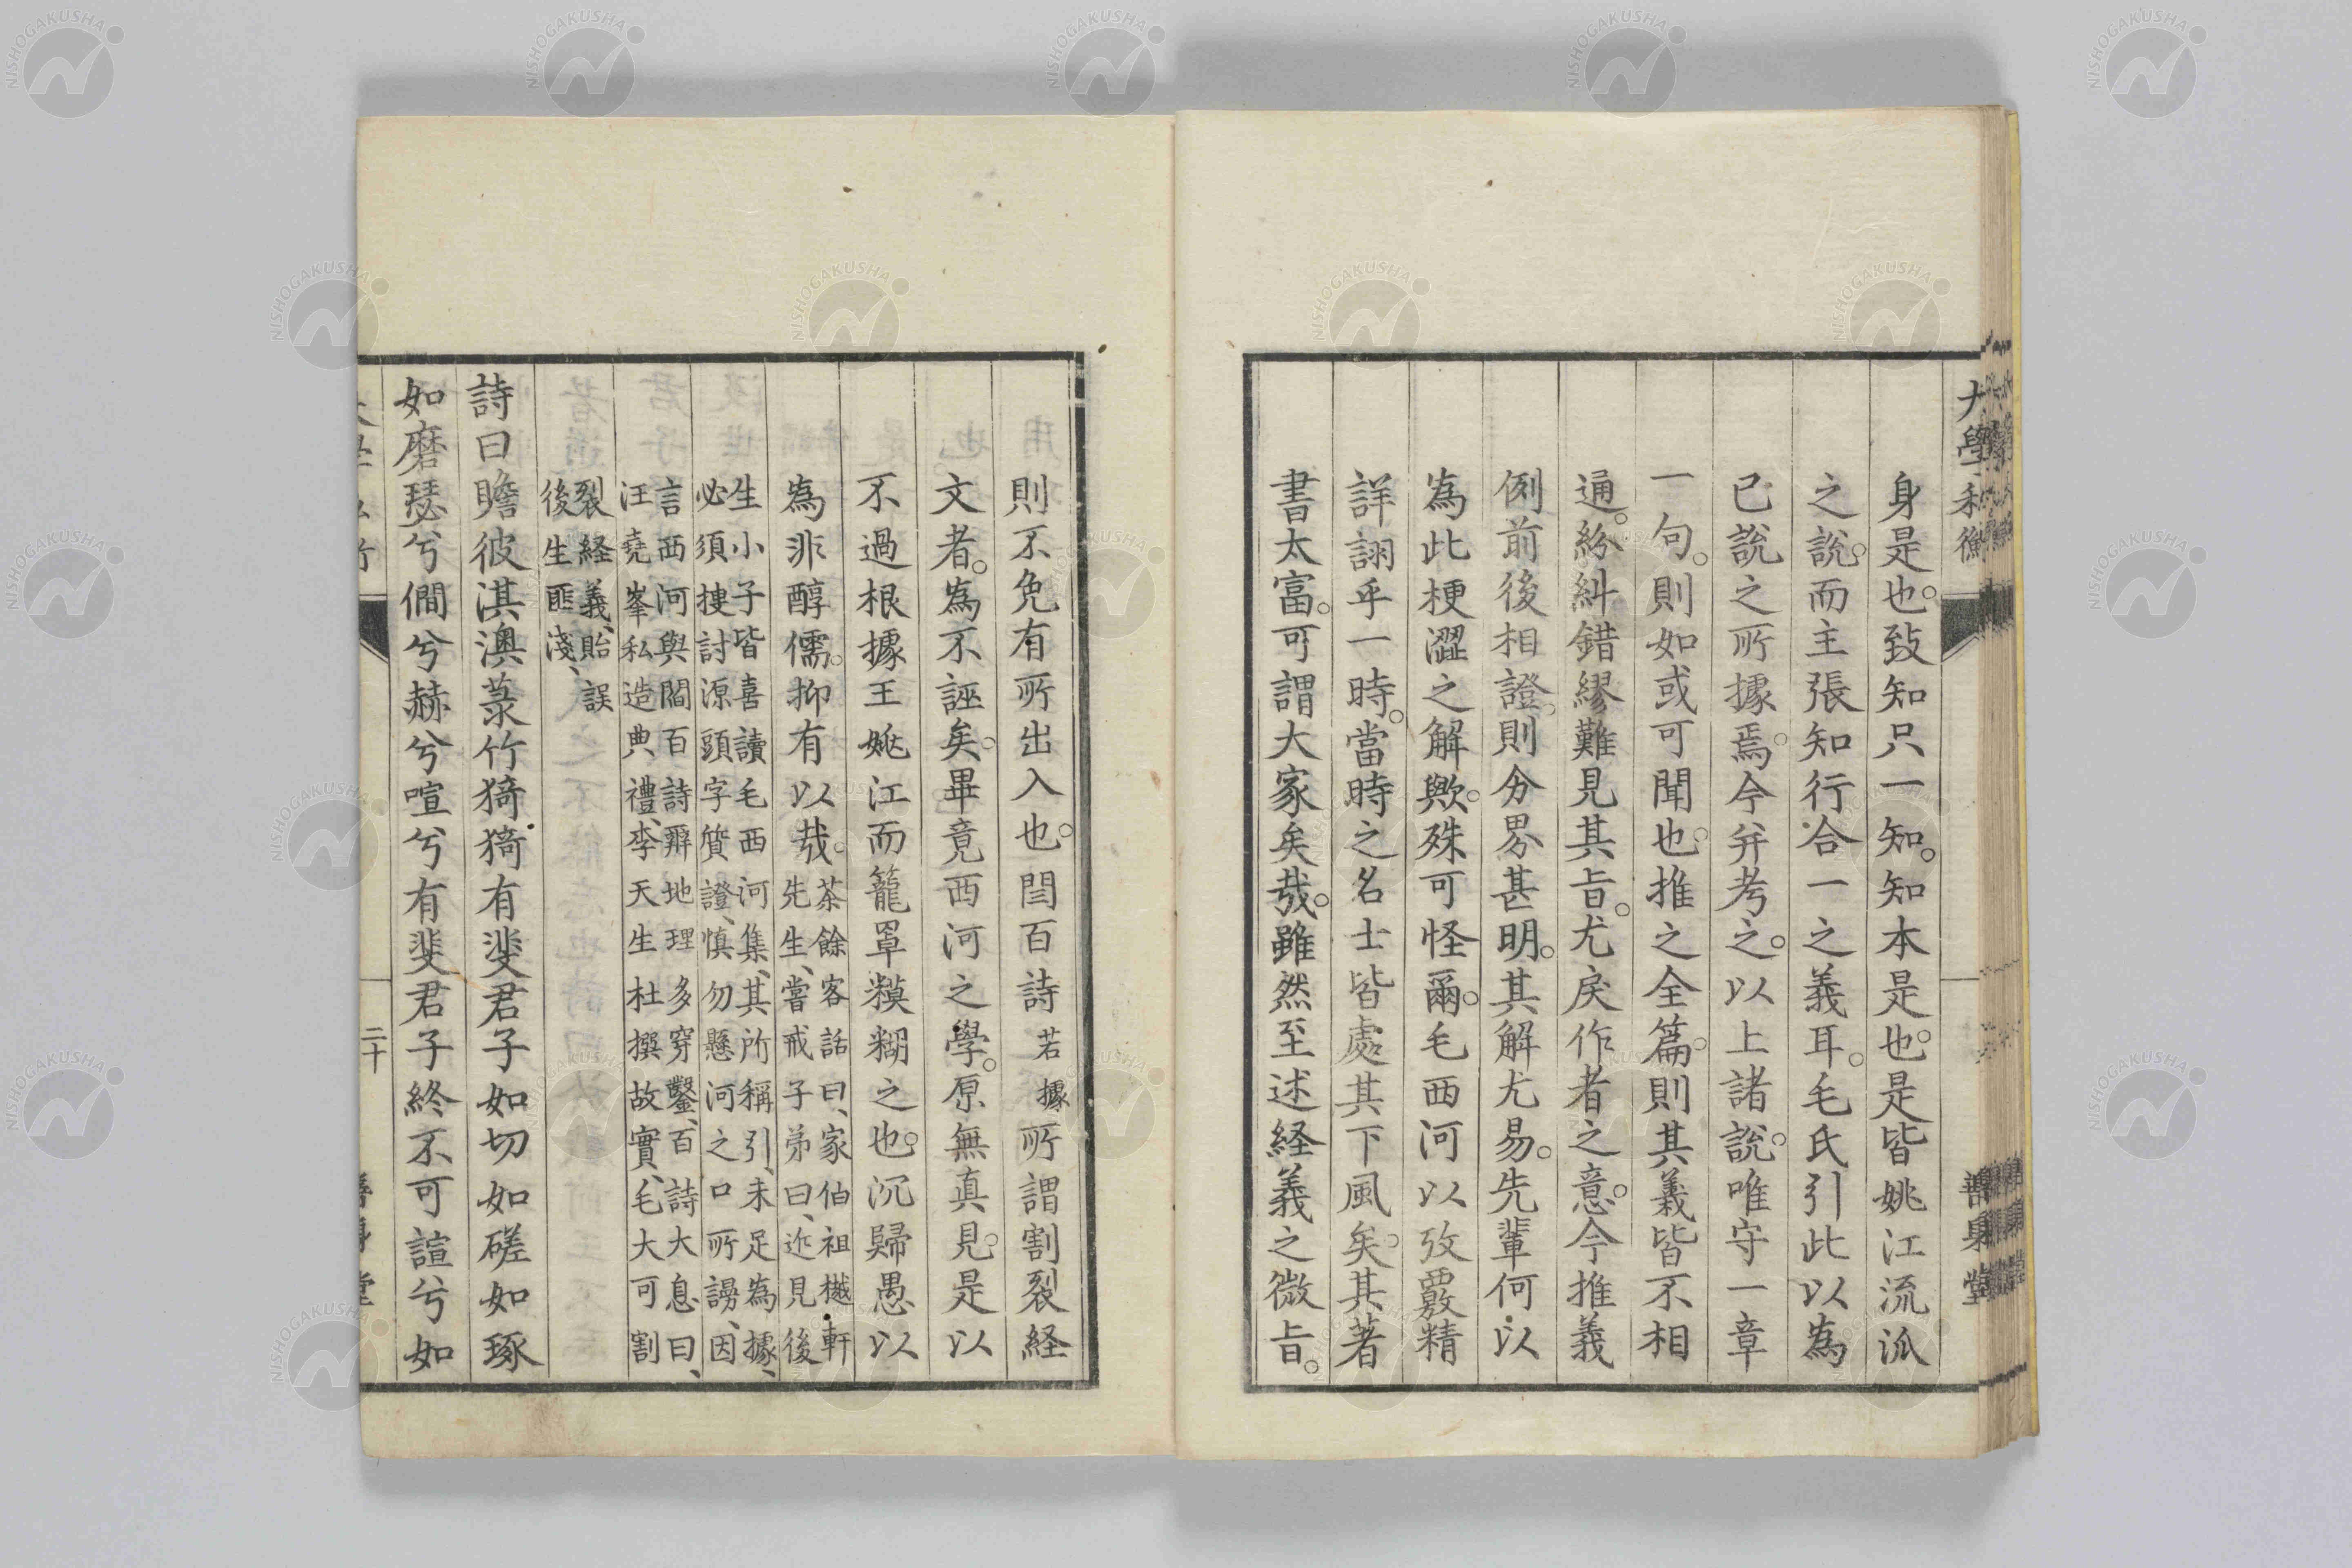 大學私衡
善身堂
身是也。致知只一知。知本是也。是皆姚江流派
之說。而主張知行合一之義耳。毛氏引此以為
已說之所據焉。今并考之。以上諸說。唯守一章
一句。則如或可聞也。推之全篇。則其義皆不相
通。紛糾錯繆難見其旨。尤戾作者之意。今推義
例前後相證。則分界甚明。其解尤易。先輩何以
為此梗澀之解歟。殊可怪爾。毛西河以攷覈精
詳詡乎一時。當時之名士皆處其下風矣。其著
書太富。可謂大家矣哉。雖然至述経義之微旨。
則不免有所出入也。閻百詩若據所謂割裂経
文者。為不誣矣。畢竟西河之學。原無真見。是以
不過根據王姚江而籠罩糢糊之也。沉歸愚以
為非醇儒。抑有以哉。
茶餘客話曰、家伯祖樾軒
先生、嘗戒子弟曰、近見後
生小子皆喜讀毛西河集、其所稱引、未足為據、
必須搜討源頭字質證、慎勿懸河之口所謗、因
言西河與閻百詩辯地理多穿鑿、百詩大息曰、
汪堯峯私造典禮、李天生杜撰故實、毛大可割
裂経義、貽誤
後生匪淺、
詩曰瞻彼淇澳菉竹猗猗有斐君子如切如磋如琢
如磨瑟兮僴兮赫兮喧兮有斐君子終不可諠兮如
二十
NISHOGAKUSHA